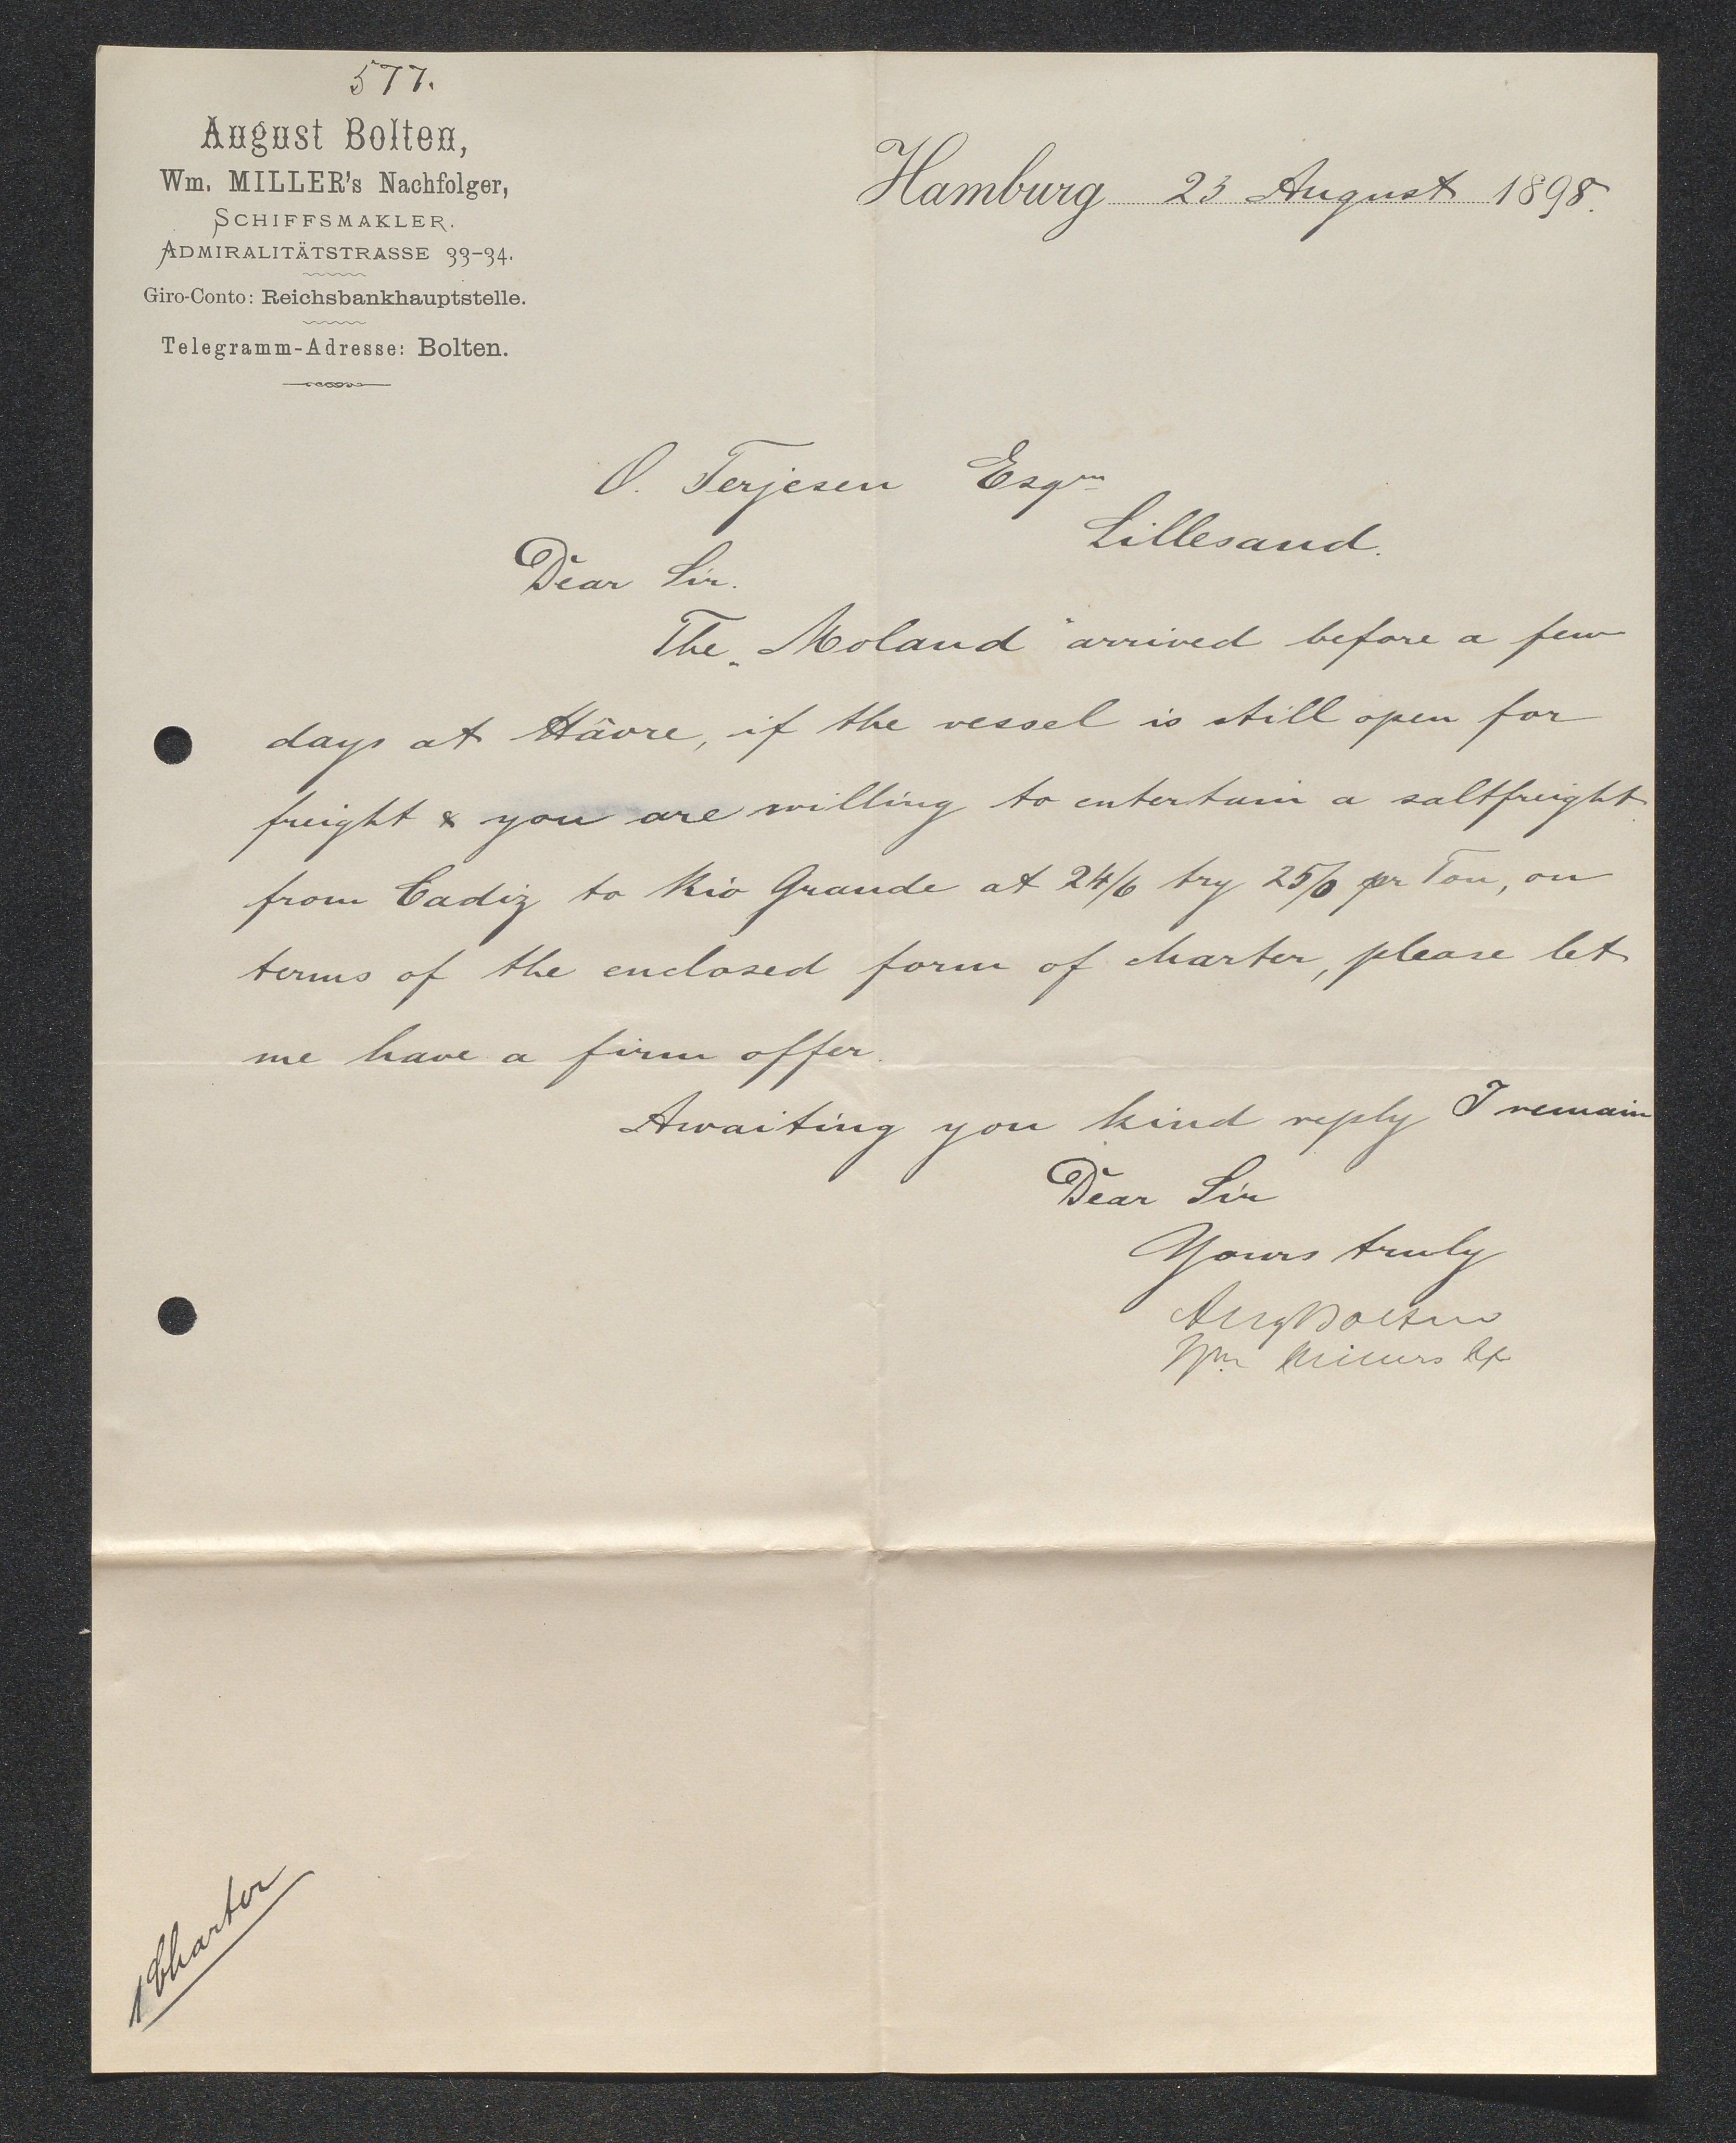 577.
August Bolten,
Wm. MILLER's Nachfolger,
SCHIFFSMAKLER.
ADMIRALITÄTSTRASSE 33-34.
Giro-Conto: Reichsbankhauptstelle.
Telegramm-Adresse: Bolten.
Hamburg 23 August 1898.
O. Terjesen Esqre
Lillesand.
Dear Sir.
The „Moland" arrived before a few
days at Hâvre, if the vessel is still open for
freight & you are willing to entertain a saltfreight
from Cadiz to Rio Grande at 24/6 try 25/0 per Ton, on
terms of the enclosed form of charter, please let
me have a firm offer.
Awaiting you kind reply I remain
Dear Sir
Yours truly
Aug Bolten
Wm Millers
1 Charter